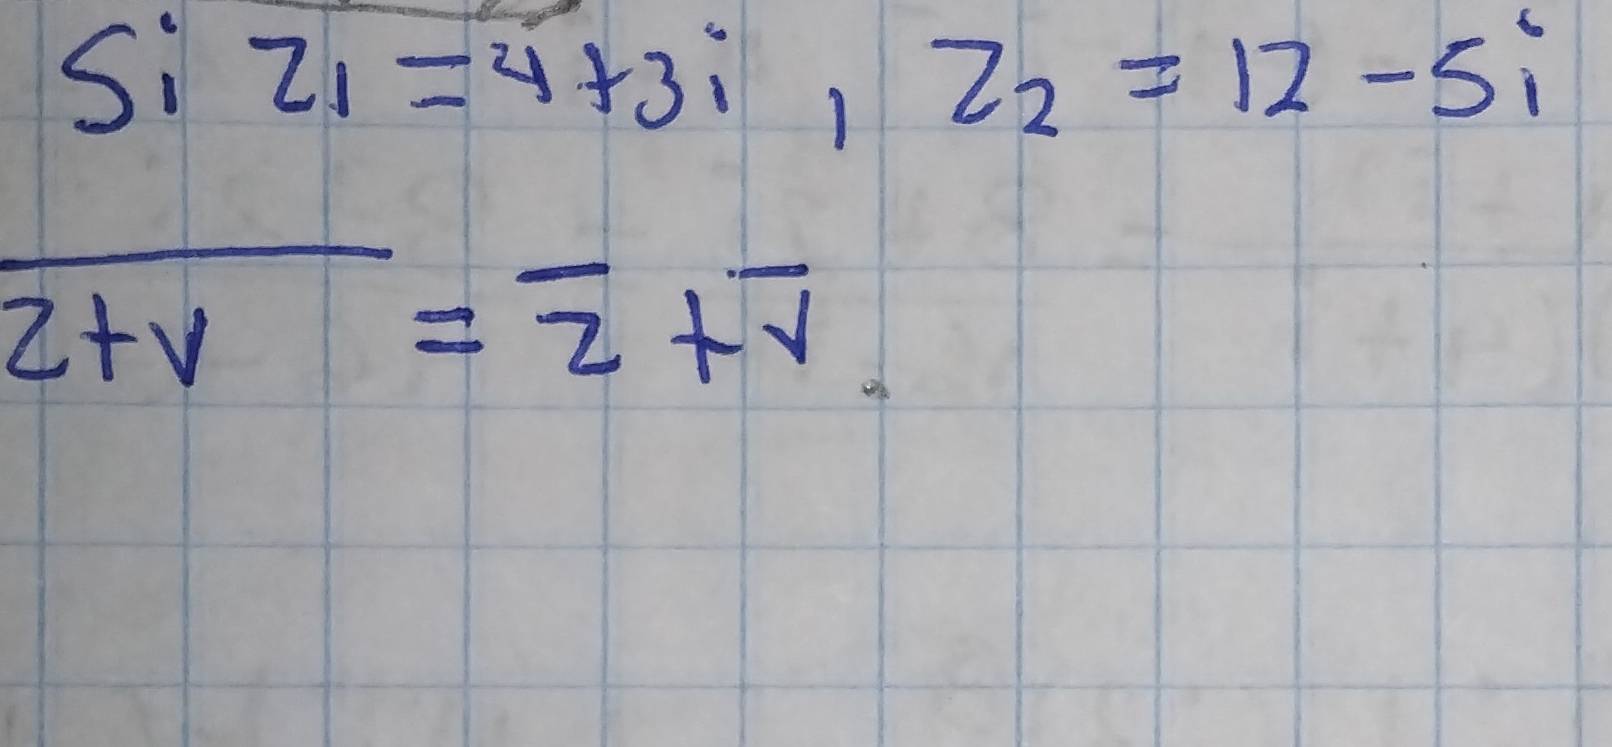 Si z₁ = 4+3i , z₂ = 12 - 5i
\overline{z+v} = \overline{z} + \overline{v}